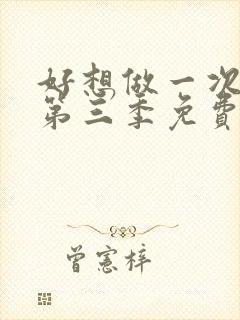 好想做一次
第三季免費
曾憲梓